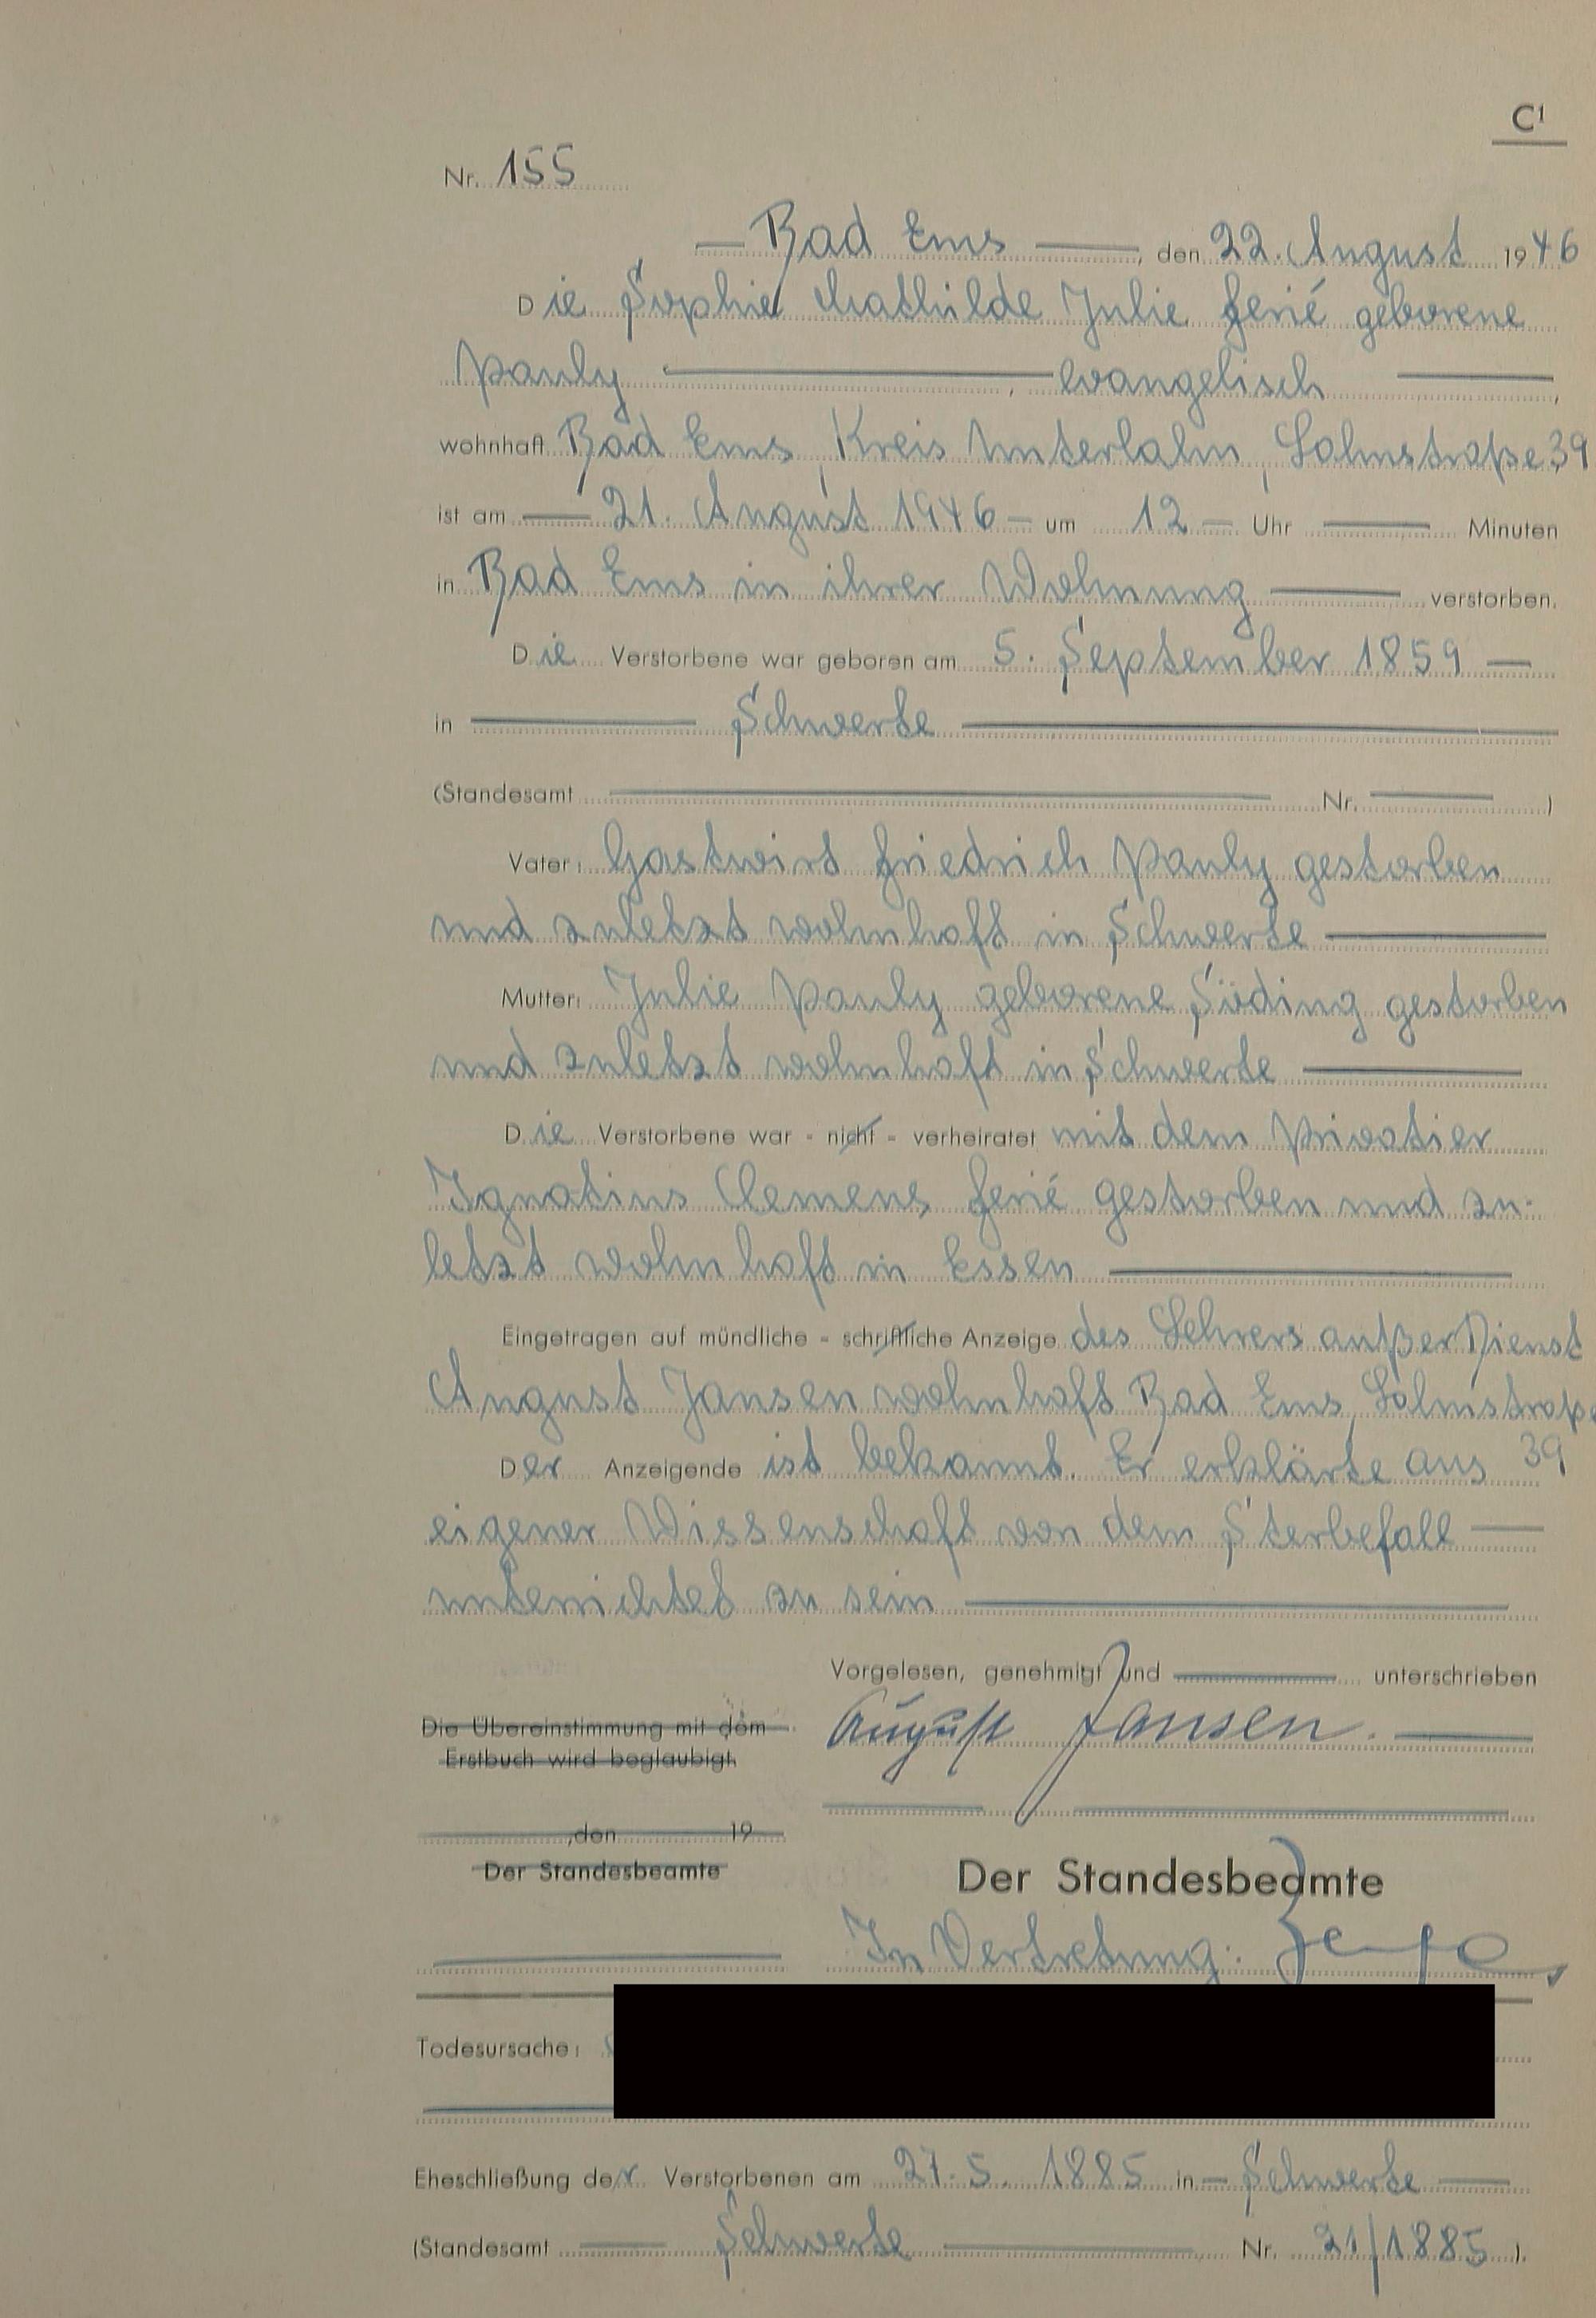 C1
Nr. 155
Bad Ems, den 22. August 1946
Die Sophie Mathilde Julie Ferié geborene
Pauly, evangelisch,
wohnhaft Bad Ems, Kreis Unterlahn, Lahnstraße 39
ist am 21. August 1946 um 12 Uhr Minuten
in Bad Ems in ihrer Wohnung verstorben.
Die Verstorbene war geboren am 5. September 1859
in Schwerte
(Standesamt Nr. )
Vater: Gastwirt Friedrich Pauly gestorben
und zuletzt wohnhaft in Schwerte
Mutter: Julie Pauly geborene Söding gestorben
und zuletzt wohnhaft in Schwerte
Die Verstorbene war - nicht - verheiratet mit dem Privatier
Ignatius Clemens Ferié gestorben und zu-
letzt wohnhaft in Essen
Eingetragen auf mündliche - schriftliche Anzeige des Lehrers außer Dienst
August Jansen wohnhaft Bad Ems, Lahnstraße
39
Der Anzeigende ist bekannt. Er erklärte aus
eigener Wissenschaft von dem Sterbefall
unterrichtet zu sein
Vorgelesen, genehmigt und unterschrieben
August Jansen.
Die Übereinstimmung mit dem
Erstbuch wird beglaubigt.
, den 19
Der Standesbeamte
Der Standesbeamte
In Vertretung:
Todesursache:
Eheschließung der Verstorbenen am 27. 5. 1885 in Schwerte
(Standesamt Schwerte Nr. 21/1885 ).